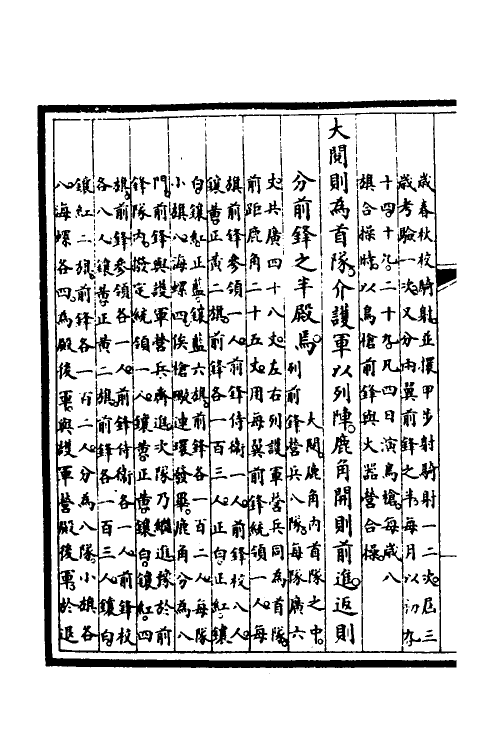 歲春秋校騎射並擐甲步射騎射一二次屆三
歲考驗一次又分兩翼前鋒之半每月以初九
十四十九二十九凡四日演鳥槍每歲八
旗合操時以鳥槍前鋒與火器營合操
大閱則為首隊介護軍以列陣鹿角開則前進返則
分前鋒之半殿焉
大閱鹿角內首隊之中
列前鋒營兵八隊每隊廣六
丈共廣四十八丈左右列護軍營兵同為首隊
前距鹿角二十五丈用每翼前鋒統領一人每
旗前鋒參領一人前鋒侍衛一人前鋒校八人
鑲黃正黃二旗前鋒各一百三人正白正紅鑲
白鑲紅正藍鑲藍六旗前鋒各一百二人每隊
小旗八海螺四俟槍礮連環發畢鹿角分為八
門前鋒與護軍營兵齊進次隊乃繼進緣於前
鋒隊內撥定統領一人鑲黃正黃鑲白鑲紅四
旗前鋒參領各一人前鋒侍衛各一人前鋒校
各八人鑲黃正黃二旗前鋒各一百三人鑲白
鑲紅二旗前鋒各一百二人分為八隊小旗各
八海螺各四為殿後軍與護軍營殿後軍於退